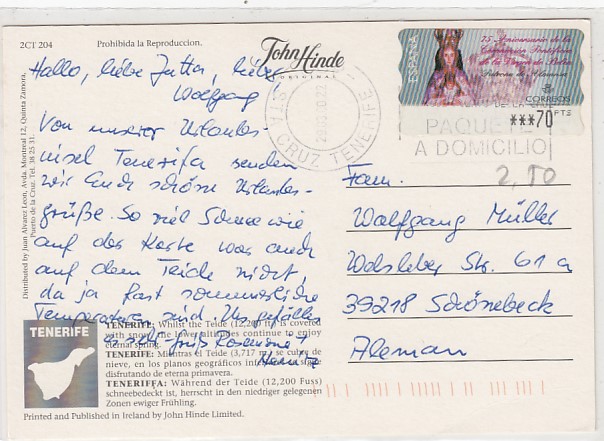 2CT 204
Prohibida la Reproduccion.
John Hinde
ORIGINAL
Distributed by Juan Alvarez Leon, Avda. Montreal 12, Quinta Zamora,
Puerto de la Cruz. Tel. 38 25 31.
Hallo, liebe Jutta, lieber
Wolfgang!
Von unserer Urlaubs-
insel Teneriffa senden
wir Euch schöne Urlaubs-
grüße. So viel Schnee wie
auf der Karte war auch
auf dem Teide nicht,
da ja fast sommerliche
Temperaturen sind. Uns gefällts
Gruß Rosemarie +
TENERIFE
TENERIFE: Whilst the Teide (12,200 ft) is covered
with snow, the lower altitudes continue to enjoy
eternal spring.
TENERIFE: Mientras el Teide (3,717 m) se cubre de
nieve, en los planos geográficos inferiores se sigue
disfrutando de eterna primavera.
TENERIFFA: Während der Teide (12,200 Fuss)
schneebedeckt ist, herrscht in den niedriger gelegenen
Zonen ewiger Frühling.
Printed and Published in Ireland by John Hinde Limited.
ESPAÑA
75 Aniversario de la
Coronación Pontificia
de la Virgen de
Patrona de
CORREOS
***70 PTS
CRUZ TENERIFE
PAQUETE
A DOMICILIO
2,50
Fam.
Wolfgang Müller
Str. 61 a
39218 Schönebeck
Aleman